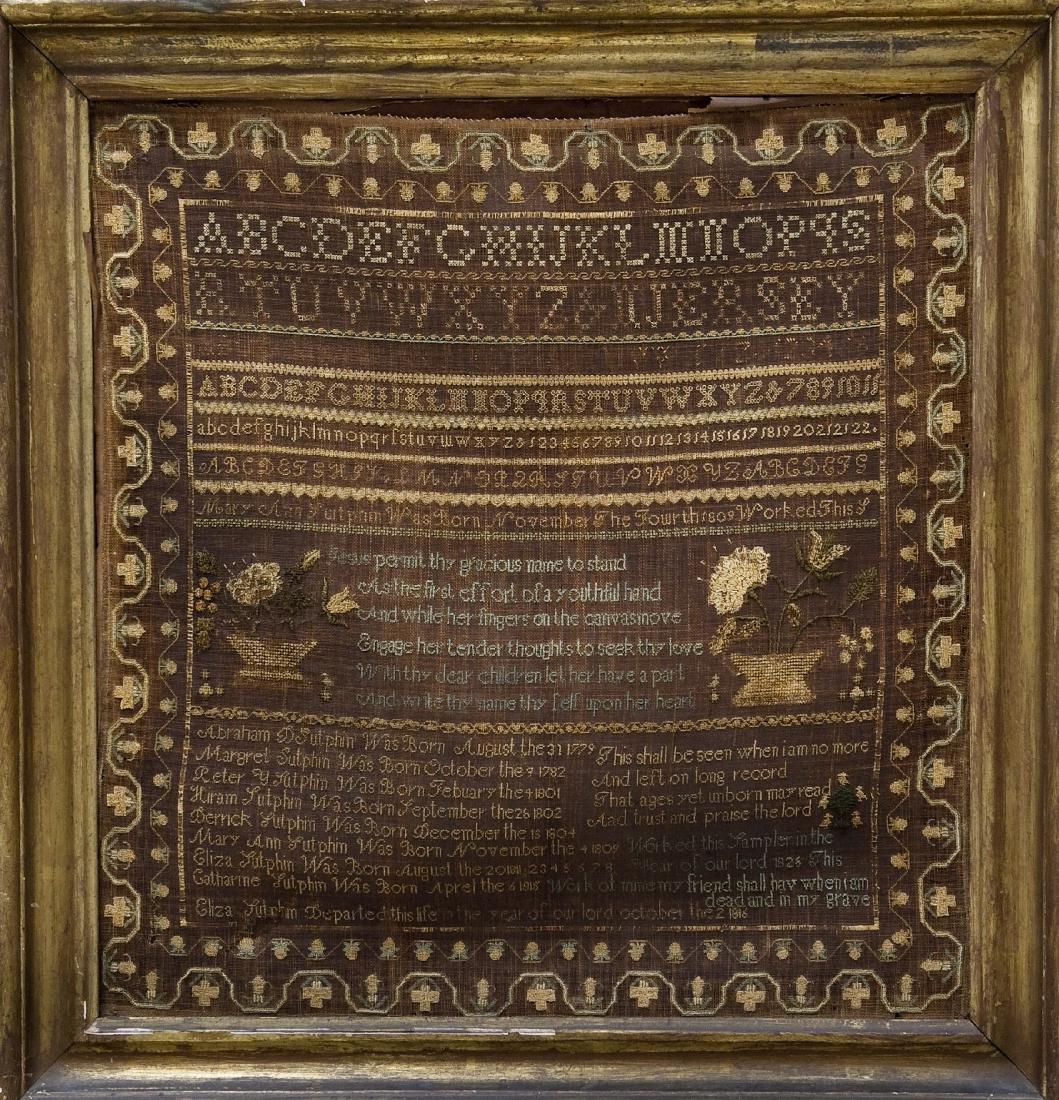 ABCDEFGHIJKLMNOPQS
RTUVWXYZ& NJERSEY
ABCDEFGHIJKLMNOPQRSTUVWXYZ&7891011
abcdefghijklmnopqrſstuvwxyz&12345678910111213141516171819202122.
ABCDEFGHI MNOPQR TUVWXYZABCDEFG
Mary Ann Sutphin Was Born November The Fourth 1809 Worked This S
Jesus permit thy gracious name to stand
As the first effort of a youthful hand
And while her fingers on the canvas move
Engage her tender thoughts to seek thy love
With thy dear children let her have a part
And write thy name thy ſelf upon her heart
Abraham D Sutphin Was Born August the 31 1779
Margret Sutphin Was Born October the 9 1782
Peter Y Sutphin Was Born Febuary the 4 1801
Hiram Sutphin Was Born September the 26 1802
Derrick Sutphin Was Born December the 15 1804
Mary Ann Sutphin Was Born November the 4 1809
Eliza Sutphin Was Born August the 20 1811 2 3 4 5 6 7 8
Catharine Sutphin Was Born Aprel the 6 1818
Eliza Sutphin Departed this life in the year of our lord october the 2 1816
This shall be seen when i am no more
And left on long record
That ages yet unborn may read
And trust and praise the lord
Worked this Sampler in the
Year of our lord 1826 This
Work of mine my friend shall hav when i am
dead and in my grave